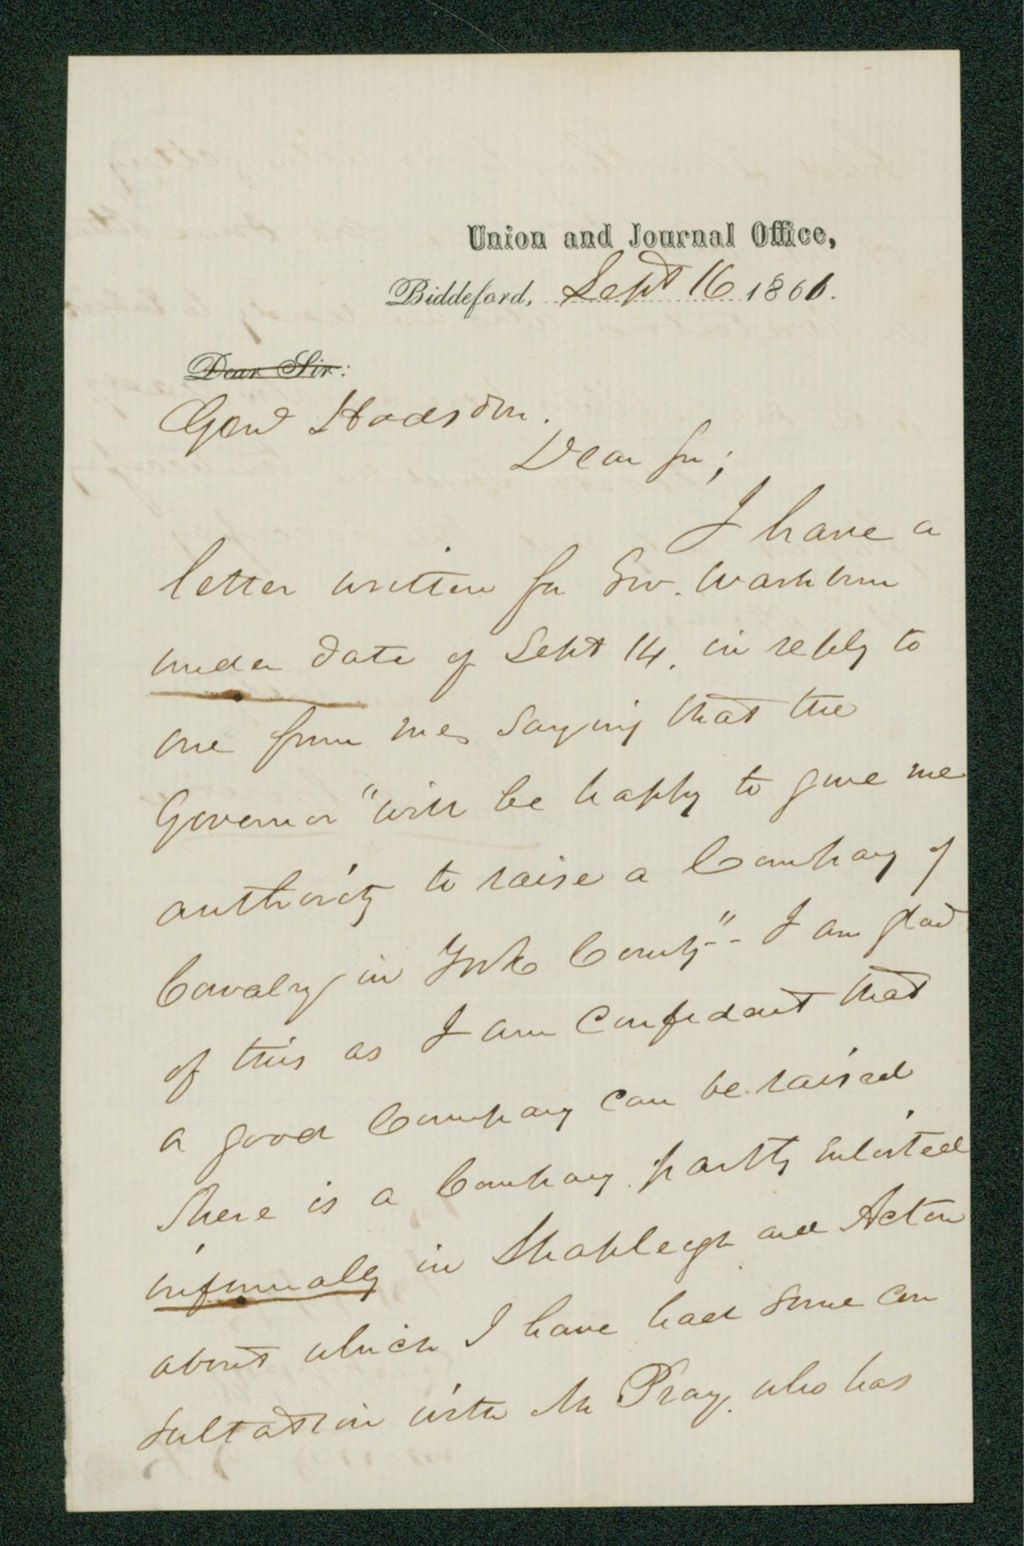 Union and Journal Office,
Biddeford, Sept 16 1861.
Dear Sir:
Genl Hodsdon.
Dear Sir;
I have a
letter written for Gov. Washburn
under date of Sept 14, in reply to
one from me, saying that the
Governor "will be happy to give me
authority to raise a Company of
Cavalry in York County"-- I am glad
of this as I am confidant that
a good Company can be raised
There is a Company partly enlisted
informally in Shapleigh and Acton
about which I have had some con
sultation with Mr Pray, who has